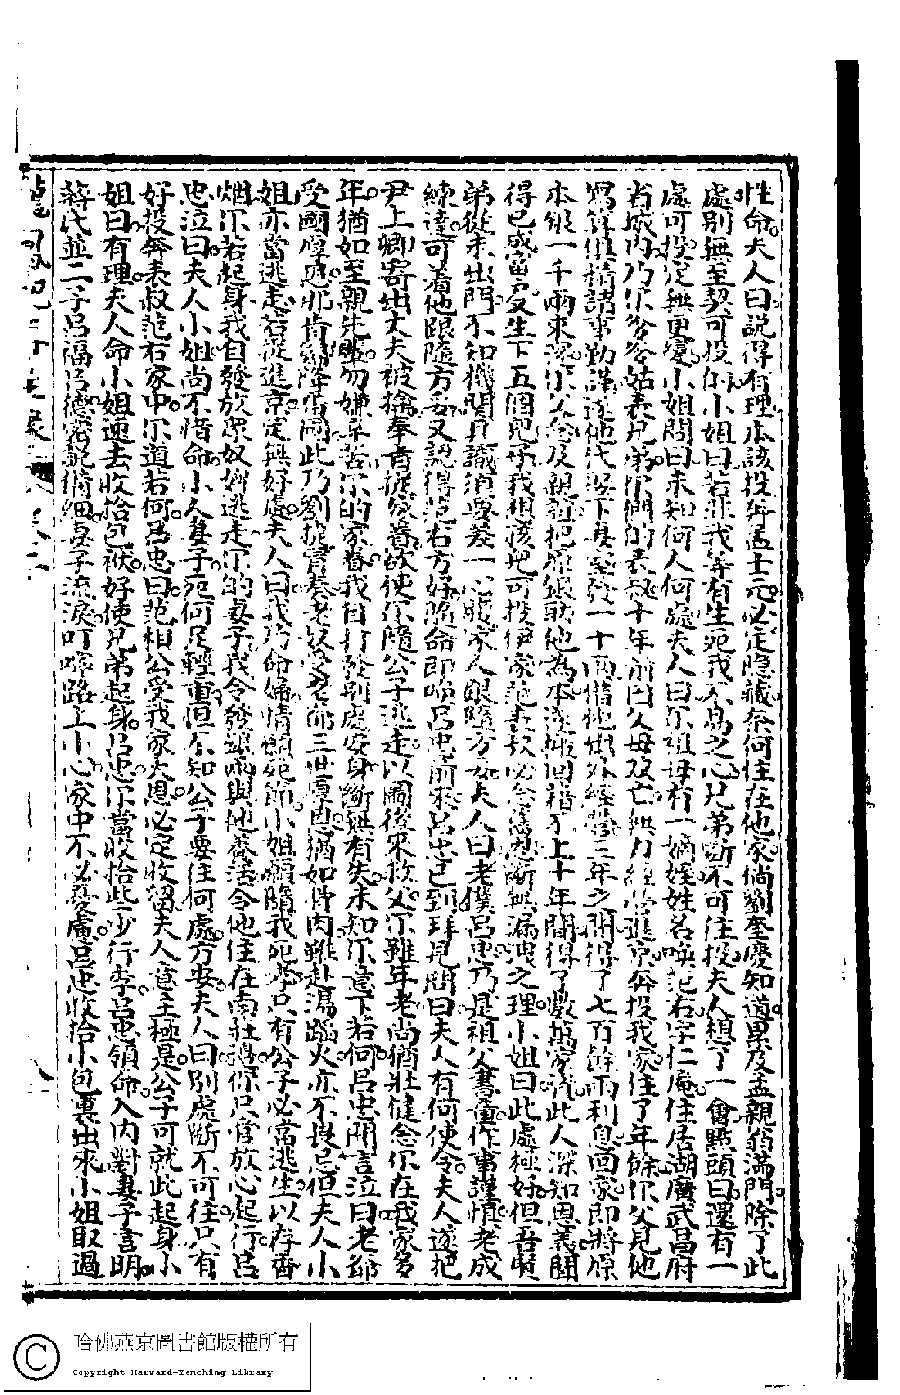 性命夫人曰說得有理本該投奔孟士元必定隱藏奈何住在他家倘劉奎璧知道累及孟親翁滿門除了此
處別無至契可投的小姐曰若非我等有生死我不為之心兄弟斷不可往投夫人想了一會點頭曰還有一
處可投定無更變小姐問曰未知何人何處夫人曰尔祖母有一嫡姪姓名喚范右字仁庵住居湖廣武昌府
省城內乃尔爹爹姑表兄弟尔們的表叔十年前因父母双亡無力經營進京奔投我家住了年餘尔父見他
寫算俱精諸事勤謹 十兩借他出外經營三年之間得了七百餘兩利息回家即將原
本銀一千兩來 尔父念及親誼把原銀助他為本 回籍不上十年間得了數萬家資此人深知恩義聞
得已感 生下五個兒子我相該把可投伊家范表叔必念舊恩斷無漏洩之理小姐曰此處極好但吾賢
弟從未出門不知機關具識須要差一心腹家人跟隨方妥夫人曰老僕呂忠乃是祖父書僮作事謹慎老成
練達可着他跟隨方妥又說得范右方好隨命即喚呂忠前來呂忠已到拜見問曰夫人有何使令夫人遂把
尹上卿寄出大夫被擒奉旨捉家眷欲使尔隨公子逃走以圖後來救父尔雖年老尚猶壯健念尔在我家多
年猶如至親 勿嫌辛苦尔的家眷我自打發別處安身斷無有失未知尔意下若何呂忠聞言泣曰老爺
受國厚恩那肯歸降番國此乃劉捷害奏老奴受老爺三世厚恩猶如骨肉雖赴湯蹈火亦不畏忌但夫人小
姐亦當逃走若從進京定無好處夫人曰我乃命婦情願死節小姐願隨我死 只有公子必當逃生以存香
烟尔若起身我自發放眾奴婢逃走尔的妻子我令發 與他養活令他住在南莊 你只管放心起行呂
忠泣曰夫人小姐尚不惜命小人妻子死何足輕重但不知公子要往何處方妥夫人曰別處斷不可往只有
好投奔表叔范右家中尔道若何呂忠曰范相公受我家大恩必定收留夫人意主極是公子可就此起身小
姐曰有理夫人命小姐速去收拾包袱好使兄弟起身呂忠尔當收拾些少行李呂忠領命入內對妻子言明
蔣氏並二子呂福呂德 說備細妻子流淚叮嚀路上小心家中不必憂慮呂忠收拾小包裹出來小姐取過
八
哈佛燕京圖書館版權所有
Copyright Harvard-Yenching Library